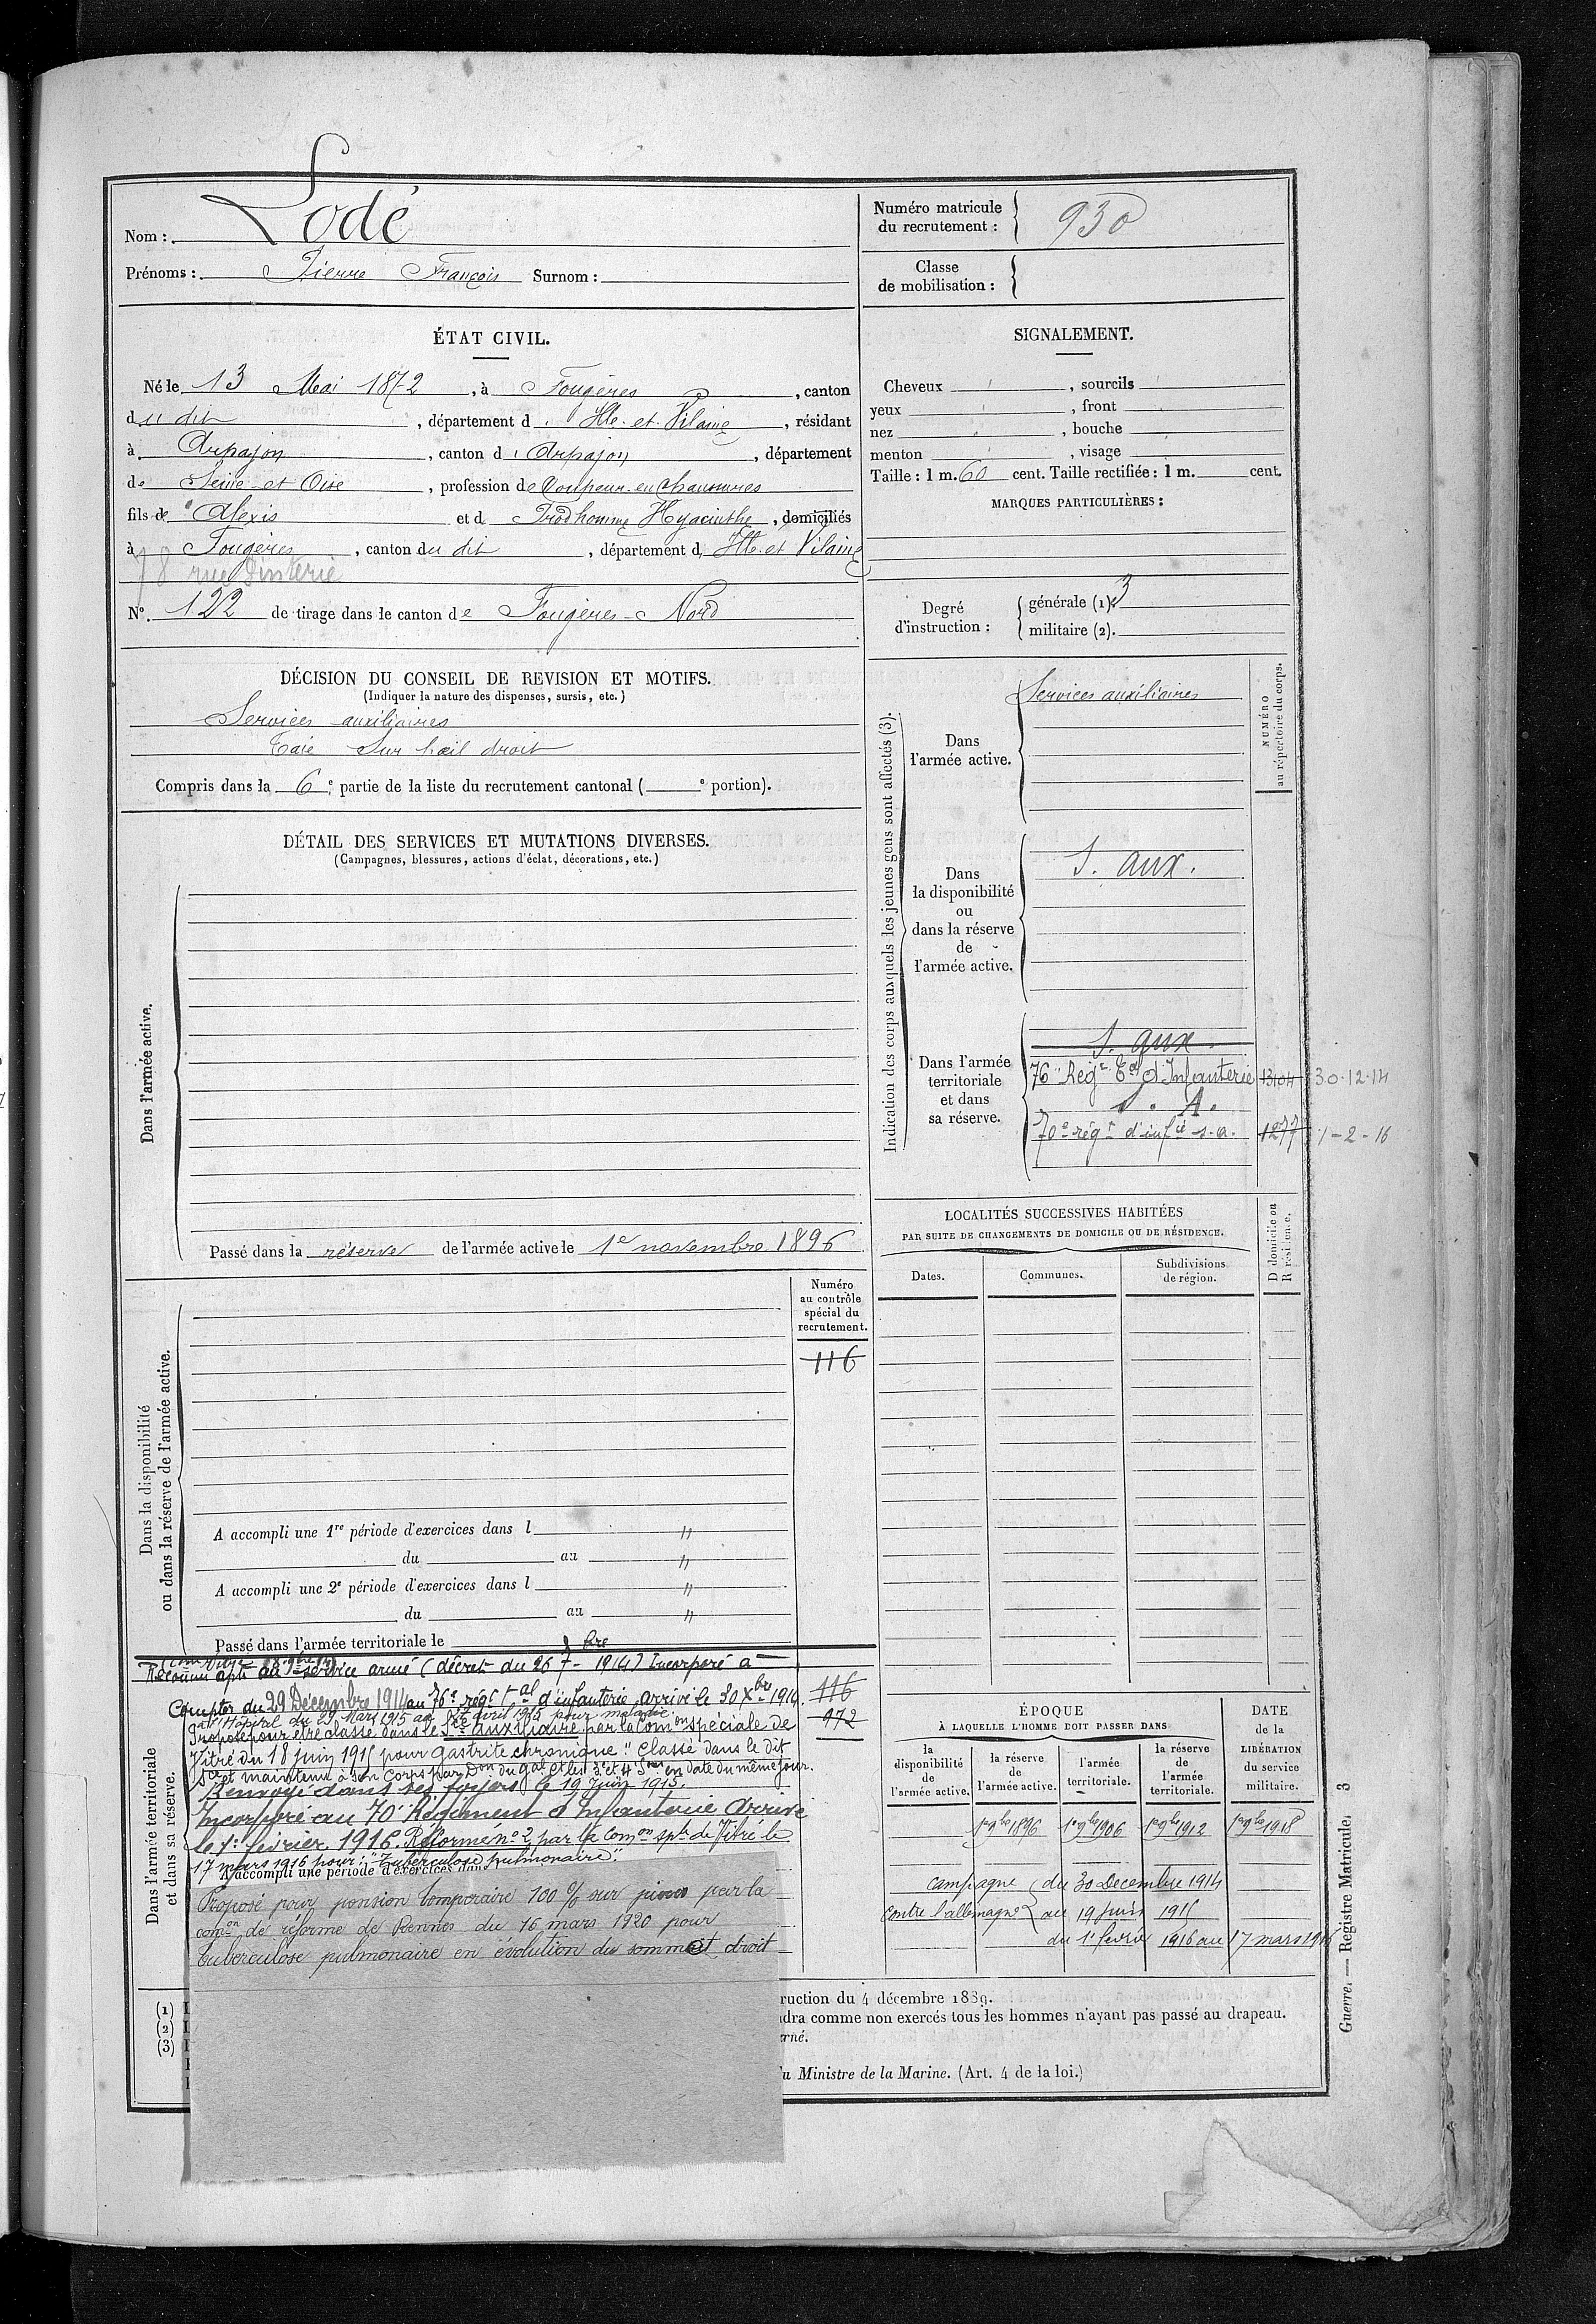 Nom : Lodé
Prénoms : Pierre François Surnom :
Numéro matricule
du recrutement : 930
Classe
de mobilisation :
ÉTAT CIVIL.
Né le 13 Mai 1872, à Fougères, canton
du dit, département d Ille-et-Vilaine, résidant
à Arpajon, canton d Arpajon, département
de Seine-et-Oise, profession de Coupeur en Chaussures
fils de Alexis et d Prodhomme Hyacinthe, domiciliés
à Fougères, canton du dit, département d Ille-et-Vilaine
78 rue Pinterie
N° 122 de tirage dans le canton de Fougères-Nord
SIGNALEMENT.
Cheveux , sourcils
yeux , front
nez , bouche
menton , visage
Taille : 1 m. 60 cent. Taille rectifiée : 1 m. cent.
MARQUES PARTICULIÈRES :
Degré
d'instruction :
générale (1). 3
militaire (2).
DÉCISION DU CONSEIL DE REVISION ET MOTIFS.
(Indiquer la nature des dispenses, sursis, etc.)
Services auxiliaires
Taie sur l'œil droit
Compris dans la 6e partie de la liste du recrutement cantonal ( e portion).
DÉTAIL DES SERVICES ET MUTATIONS DIVERSES.
(Campagnes, blessures, actions d'éclat, décorations, etc.)
Dans l'armée active.
Passé dans la réserve de l'armée active le 1er novembre 1896
Indication des corps auxquels les jeunes gens sont affectés (3).
NUMÉRO
au répertoire du corps.
Dans
l'armée active.
Services auxiliaires
Dans
la disponibilité
ou
dans la réserve
de
l'armée active.
S. aux.
Dans l'armée
territoriale
et dans
sa réserve.
S. aux.
76e Régt Tal d'Infanterie 13104 30.12.14
S. A.
70e régt d'infie s.a. 1277 1-2-16
LOCALITÉS SUCCESSIVES HABITÉES
PAR SUITE DE CHANGEMENTS DE DOMICILE OU DE RÉSIDENCE.
Dates.
Communes.
Subdivisions
de région.
D domicile ou
R résidence.
Dans la disponibilité
ou dans la réserve de l'armée active.
Numéro
au contrôle
spécial du
recrutement.
116
A accompli une 1re période d'exercices dans l "
du au "
A accompli une 2e période d'exercices dans l "
du au "
Passé dans l'armée territoriale le
Dans l'armée territoriale
et dans sa réserve.
Reconnu apte au service armé (décret du 26 7bre 1914) Incorporé à
compter du 29 Décembre 1914 au 76e régt tal d'infanterie, arrivé le 30 Xbre 1914.
116
972
à l'Hôpital du 29 Mars 1915 au avril 1915 pour maladie.
Proposé pour être classé dans le Sce auxiliaire par la Comon spéciale de
Vitré du 18 juin 1915 pour "gastrite chronique". Classé dans le dit
Sce et maintenu à son corps par Don du Gal Ct les 3e et 4e Sons en date du même jour.
Renvoyé dans ses foyers le 19 Juin 1915.
Incorporé au 70e Régiment d'Infanterie. Arrivé
le 1er février 1916. Réformé n° 2 par la Comon sple de Vitré le
17 mars 1916 pour : "Tuberculose pulmonaire".
A accompli une période d'exercices dans l
Proposé pour pension temporaire 100 % sur pièces par la
comon de réforme de Rennes du 16 mars 1920 pour
tuberculose pulmonaire en évolution du sommet droit
ÉPOQUE
À LAQUELLE L'HOMME DOIT PASSER DANS
la
disponibilité
de
l'armée active.
la réserve
de
l'armée active.
l'armée
territoriale.
la réserve
de
l'armée
territoriale.
DATE
de la
LIBÉRATION
du service
militaire.
1er 9bre 1896 1er 9bre 1906 1er 9bre 1912 1er 9bre 1918
campagne du 30 Décembre 1914
contre l'allemagne au 19 juin 1915
du 1er février 1916 au 17 mars 1916
(1)
(2)
(3)
ruction du 4 décembre 1889.
dra comme non exercés tous les hommes n'ayant pas passé au drapeau.
erné.
u Ministre de la Marine. (Art. 4 de la loi.)
Guerre. — Registre Matricule. 3